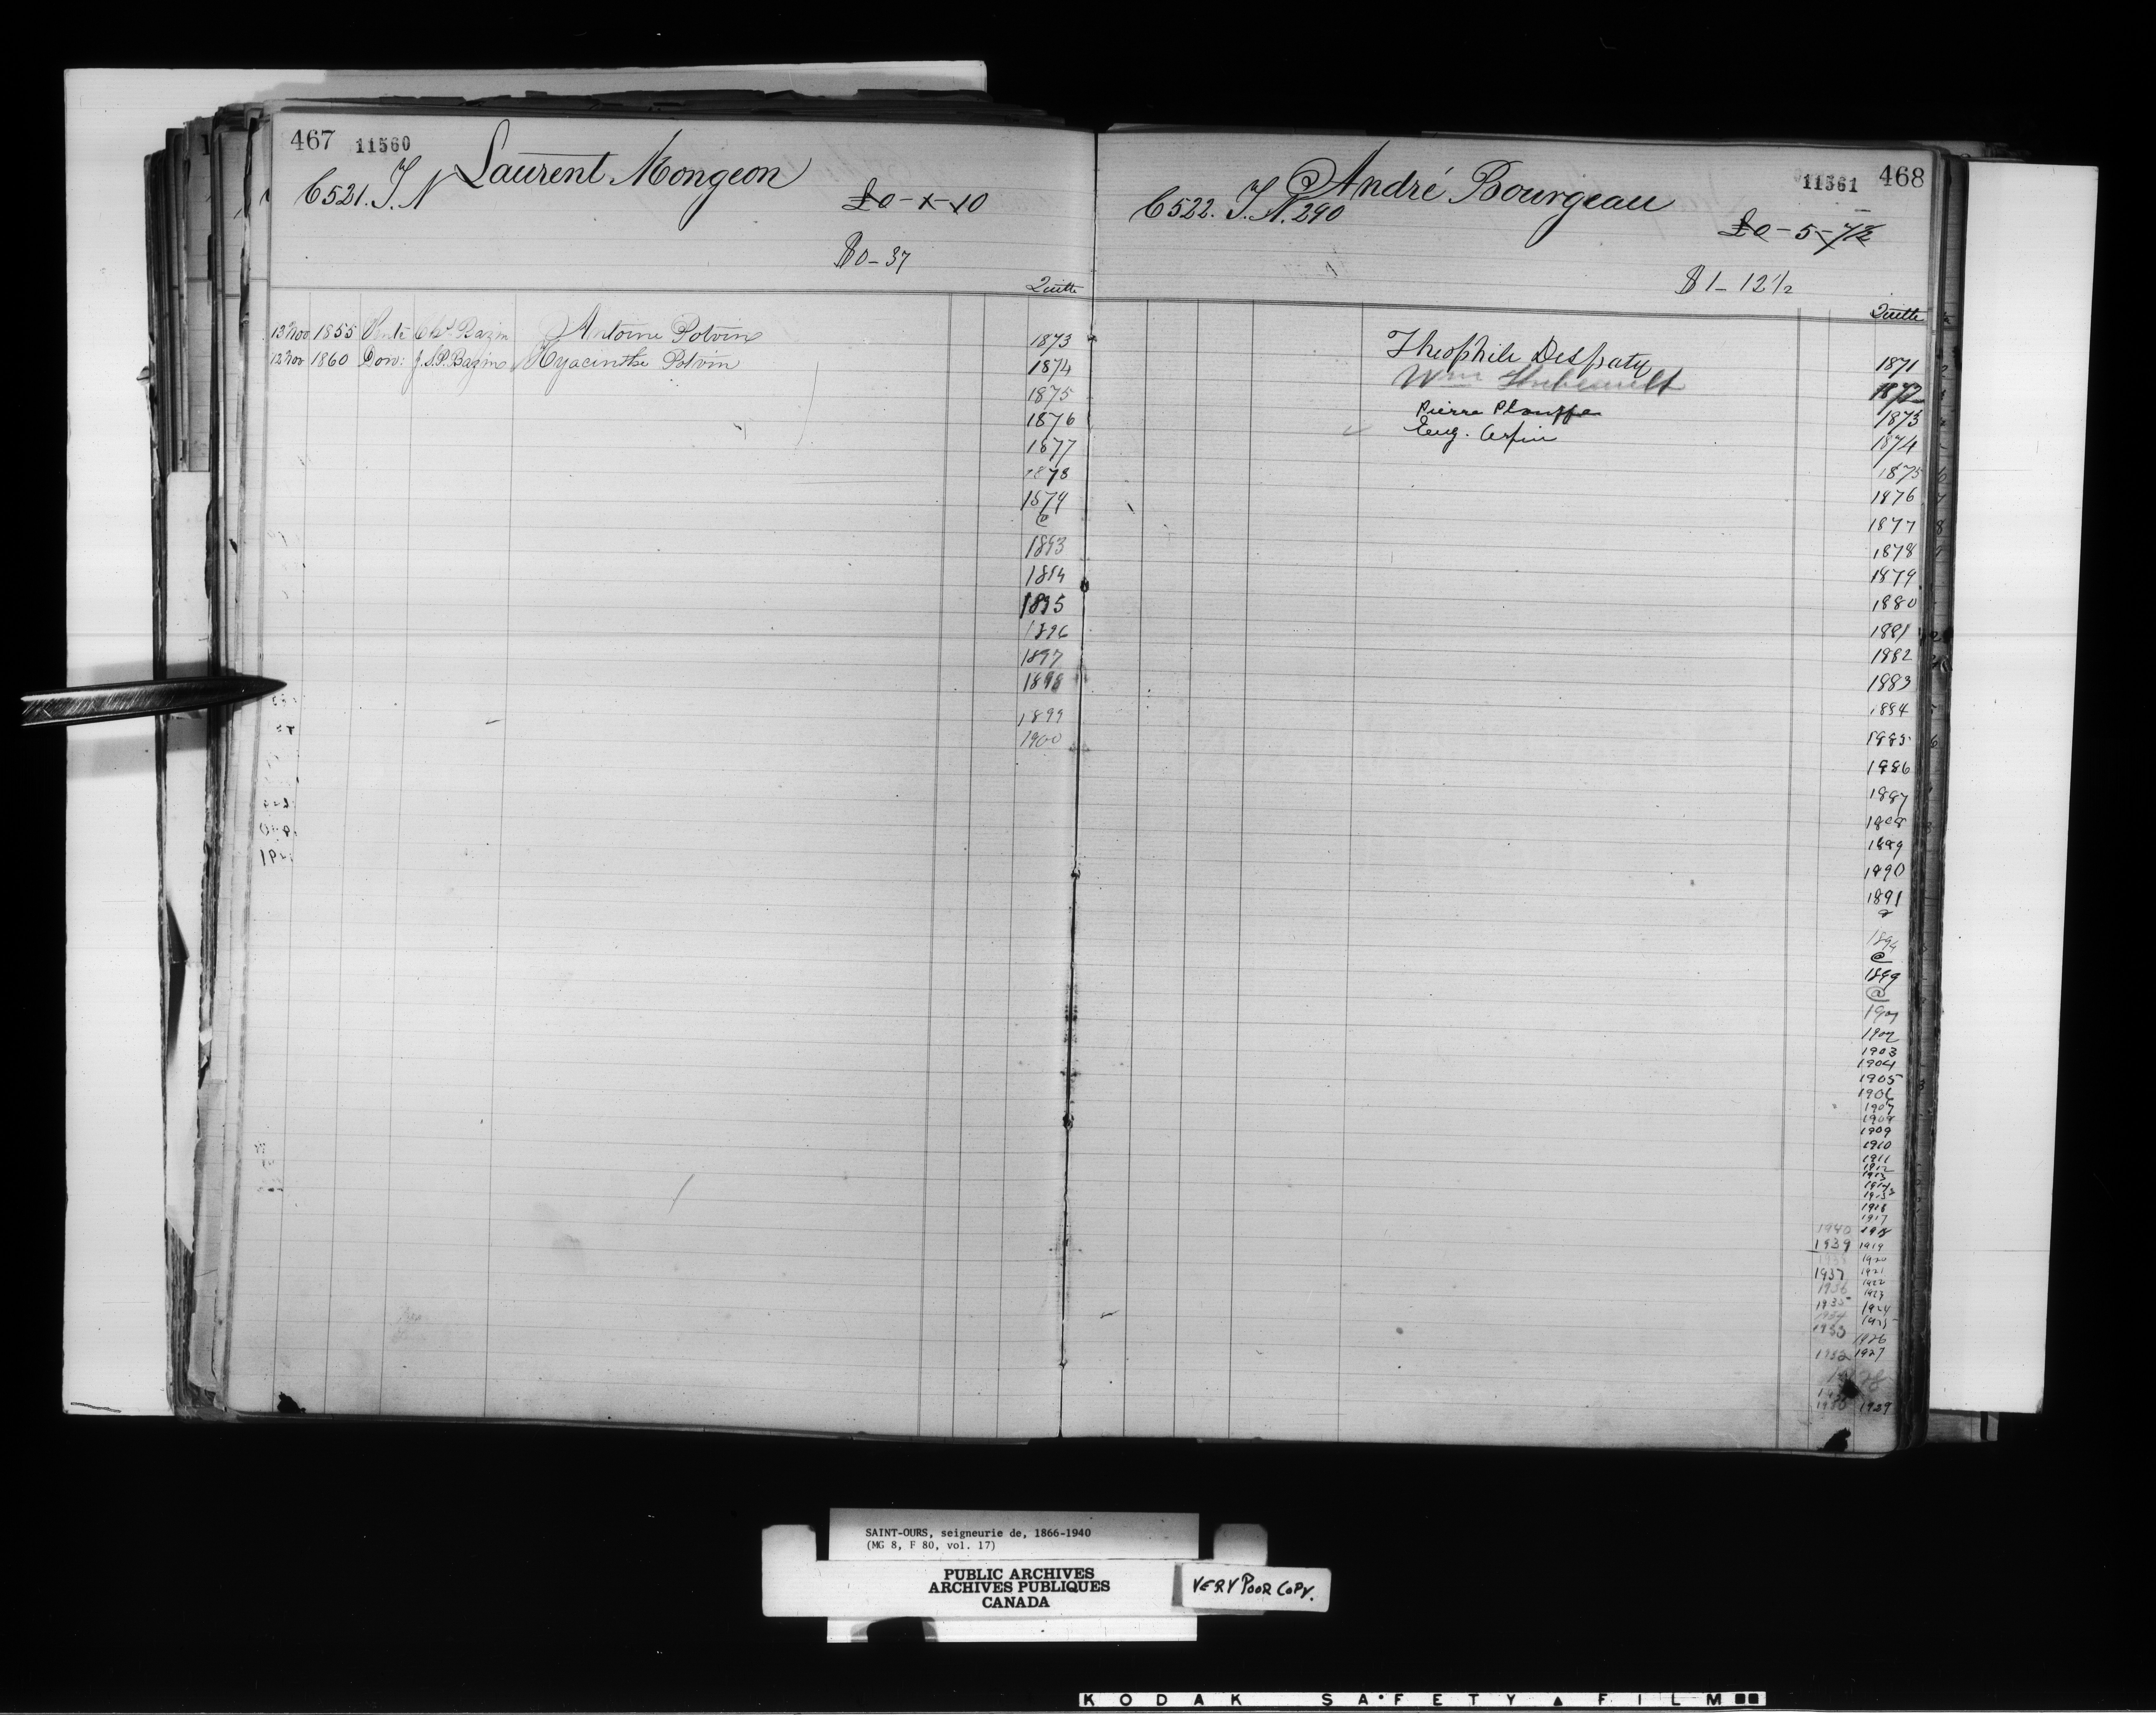 467 11560
Laurent Mongeon
C521. T. N
£0-1-10
$0-37
Quitte
13 Nov 1855 Vente Chs. Bazin Antoine Potvin
12 Nov 1860 Don: J.S.P. Bazin Hyacinthe Potvin
1873
1874
1875
1876
1877
1878
1879
@
1893
1894
1895
1896
1897
1898
1899
1900
11561 468
André Bourgeau
C522. T. N. 290
£0-5-7½
$1-12½
Quitte
Theophile Despaty
Wm
Pierre Plouffe
Eug. Arpin
1871
1872
1873
1874
1875
1876
1877
1878
1879
1880
1881
1882
1883
1884
1885
1886
1887
1888
1889
1890
1891
@
1894
@
1899
@
1901
1902
1903
1904
1905
1906
1907
1908
1909
1910
1911
1912
1913
1914
1915
1916
1917
1940 1918
1939 1919
1920
1937 1921
1936 1922
1923
1935 1924
1934 1925
1933 1926
1932 1927
1930 1929
SAINT-OURS, seigneurie de, 1866-1940
(MG 8, F 80, vol. 17)
PUBLIC ARCHIVES
ARCHIVES PUBLIQUES
CANADA
VERY POOR COPY.
KODAK SAFETY FILM